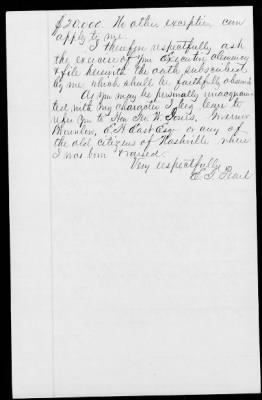 $20,000. No other exception can
apply to me.
I therefore respectfully ask
the exercise of your Executive clemency
& file herewith the oath subscribed
by me which shall be faithfully observed
As you may be personally unacquain-
ted with my character I beg leave to
refer you to Hon Geo W. Jones,
E H East Esq or any of
the old citizens of Nashville where
I was born & raised.
Very respectfully